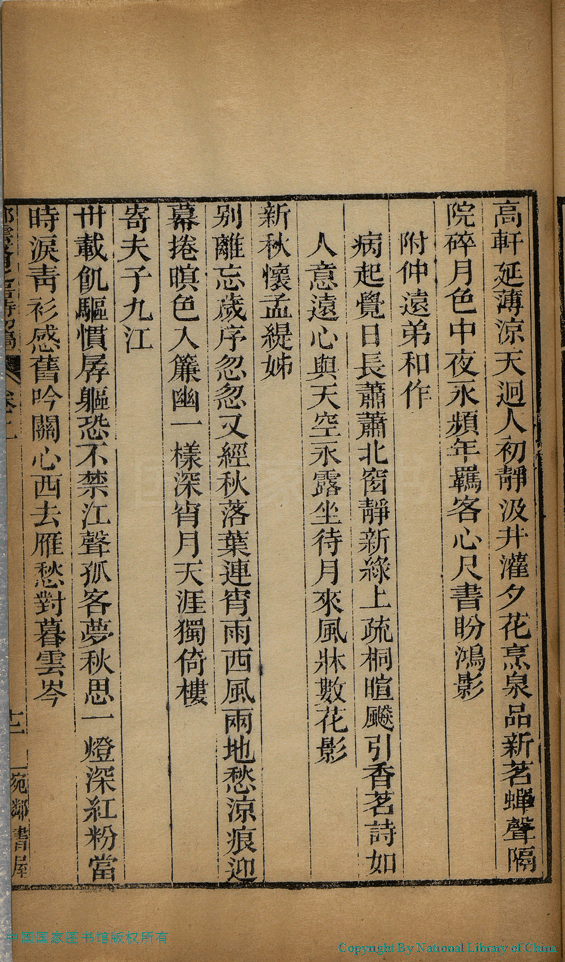 高軒延薄涼天迥人初靜汲井灌夕花烹泉品新茗蟬聲隔
院碎月色中夜永頻年羈客心尺書盼鴻影
附仲遠弟和作
病起覺日長蕭蕭北窗靜新綠上疏桐暄飈引香茗詩如
人意遠心與天空永露坐待月來風牀數花影
新秋懷孟緹姊
別離忘歲序忽忽又經秋落葉連宵雨西風兩地愁涼痕迎
幕捲暝色入簾幽一樣深宵月天涯獨倚樓
寄夫子九江
卅載飢驅慣孱軀恐不禁江聲孤客夢秋思一燈深紅粉當
時淚靑衫感舊吟關心西去雁愁對暮雲岑
卷二
十二
宛鄰書屋
中国国家图书馆版权所有
Copyright By National Library of China